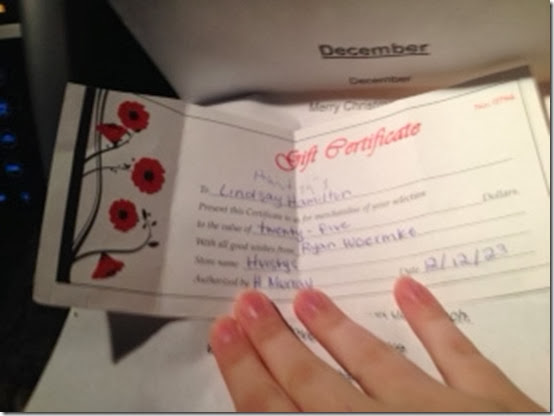 December
December
Merry
No.
Gift Certificate
To Lindsay Hamilton
Present this Certificate to us for merchandise of your selection
In the value of twenty-five Dollars
With all good wishes from Ryan Woermke
Store name
Authorized by H
Date 12/12/23